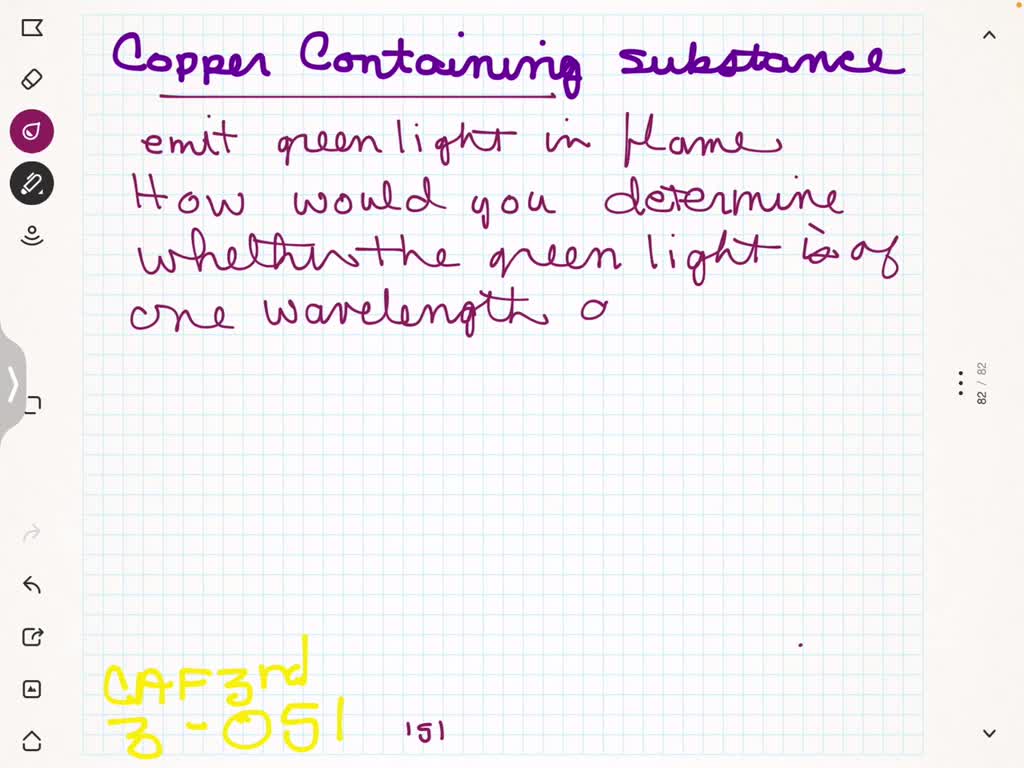 Copper Containing substance
emit green light in flame
How would you determine
whether the green light is of
one wavelength o
82 / 82
CAF 3rd
3-051
151